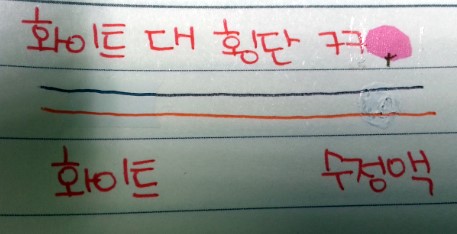 화이트 대 횡단
화이트 수정액